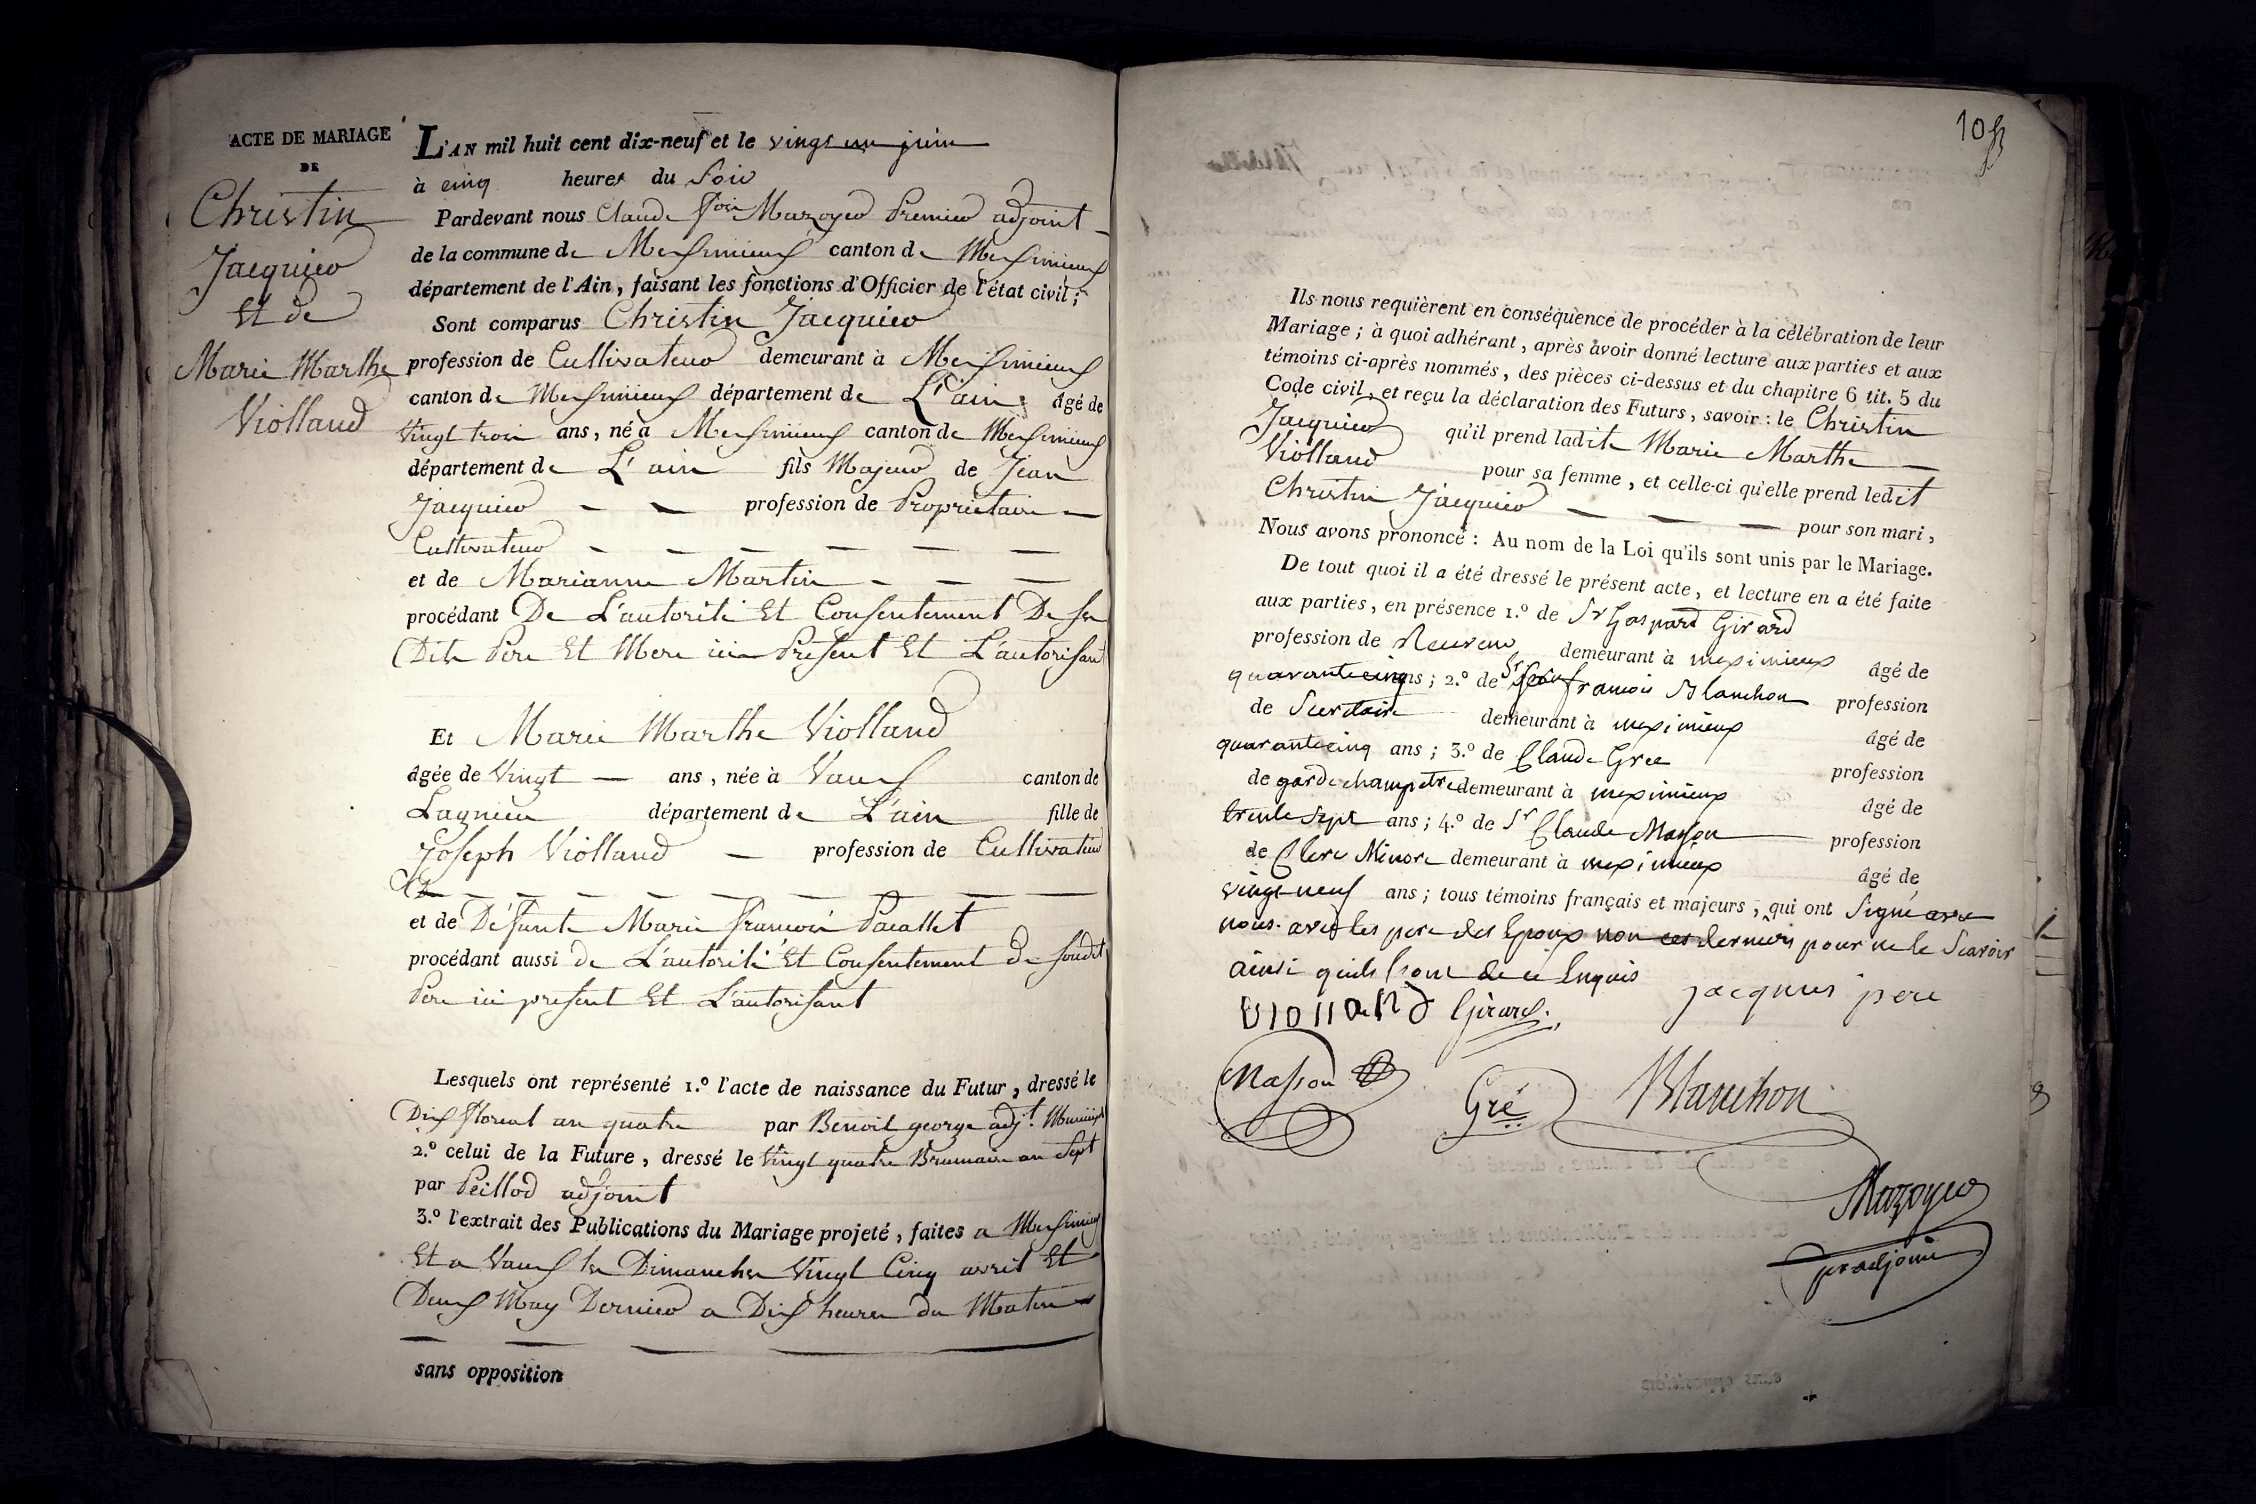 ACTE DE MARIAGE
DE
Christin
Jacquier
Et de
Marie Marthe
Violland
L'AN mil huit cent dix-neuf et le vingt un juin
à cinq heures du Soir
Pardevant nous Claude fois Mazoyer Premier adjoint
de la commune de Meximieux canton de Meximieux
département de l'Ain, faisant les fonctions d'Officier de l'état civil;
Sont comparus Christin Jacquier
profession de Cultivateur demeurant à Meximieux
canton de Meximieux département de L'ain âgé de
Vingt trois ans, né à Meximieux canton de Meximieux
département de L'ain fils Majeur de Jean
Jacquier — — profession de Propriétaire —
Cultivateur — — — — — —
et de Marianne Martin — — —
procédant De L'autorité Et Consentement De ses
Dits Père Et Mere ici Présent Et L'autorisant
Et Marie Marthe Violland
âgée de Vingt — ans, née à Vaux canton de
Lagnieu département de L'ain fille de
Joseph Violland — profession de Cultivateur
et de Défunte Marie françoise Pacallet
procédant aussi de L'autorité Et Consentement de sondit
Pere ici present Et L'autorisant
Lesquels ont représenté 1.º l'acte de naissance du Futur, dressé le
Dix floreal an quatre par Benoit george adj.t Municipal
2.º celui de la Future, dressé le Vingt quatre Brumaire an Sept
par Peillod adjoint
3.º l'extrait des Publications du Mariage projeté, faites a Meximieux
Et a Vaux les Dimanches Vingt Cinq avril Et
Deux May Dernier a Dix heures du Matin
sans opposition
105
Ils nous requièrent en conséquence de procéder à la célébration de leur
Mariage; à quoi adhérant, après avoir donné lecture aux parties et aux
témoins ci-après nommés, des pièces ci-dessus et du chapitre 6 tit. 5 du
Code civil, et reçu la déclaration des Futurs, savoir: le Christin
Jacquier qu'il prend ladite Marie Marthe —
Violland pour sa femme, et celle-ci qu'elle prend ledit
Christin Jacquier — — — pour son mari,
Nous avons prononcé: Au nom de la Loi qu'ils sont unis par le Mariage.
De tout quoi il a été dressé le présent acte, et lecture en a été faite
aux parties, en présence 1.º de Sr Gaspard Girard
profession de Receveur demeurant à meximieux âgé de
quarantecinq ans; 2.º de Sr françois Blanchon profession
de Secretaire demeurant à meximieux âgé de
quarantecinq ans; 3.º de Claude Gree profession
de garde champetre demeurant à meximieux âgé de
trente sept ans; 4.º de Sr Claude Masson profession
de Clerc Minore demeurant à meximieux âgé de
vingt neuf ans; tous témoins français et majeurs, qui ont Signé avec
nous avec les pere des Epoux non ces derniers pour ne le Scavoir
ainsi quils sont de ce Enquis
jacquier pere
viollaNd Girard.
Masson
Gré
Blanchon
Mazoyer
pr adjoint